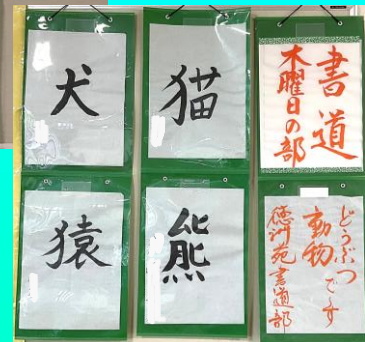 犬
猫
書道
木曜日の部
猿
熊
どうぶつ
動物です
徳洲苑書道部